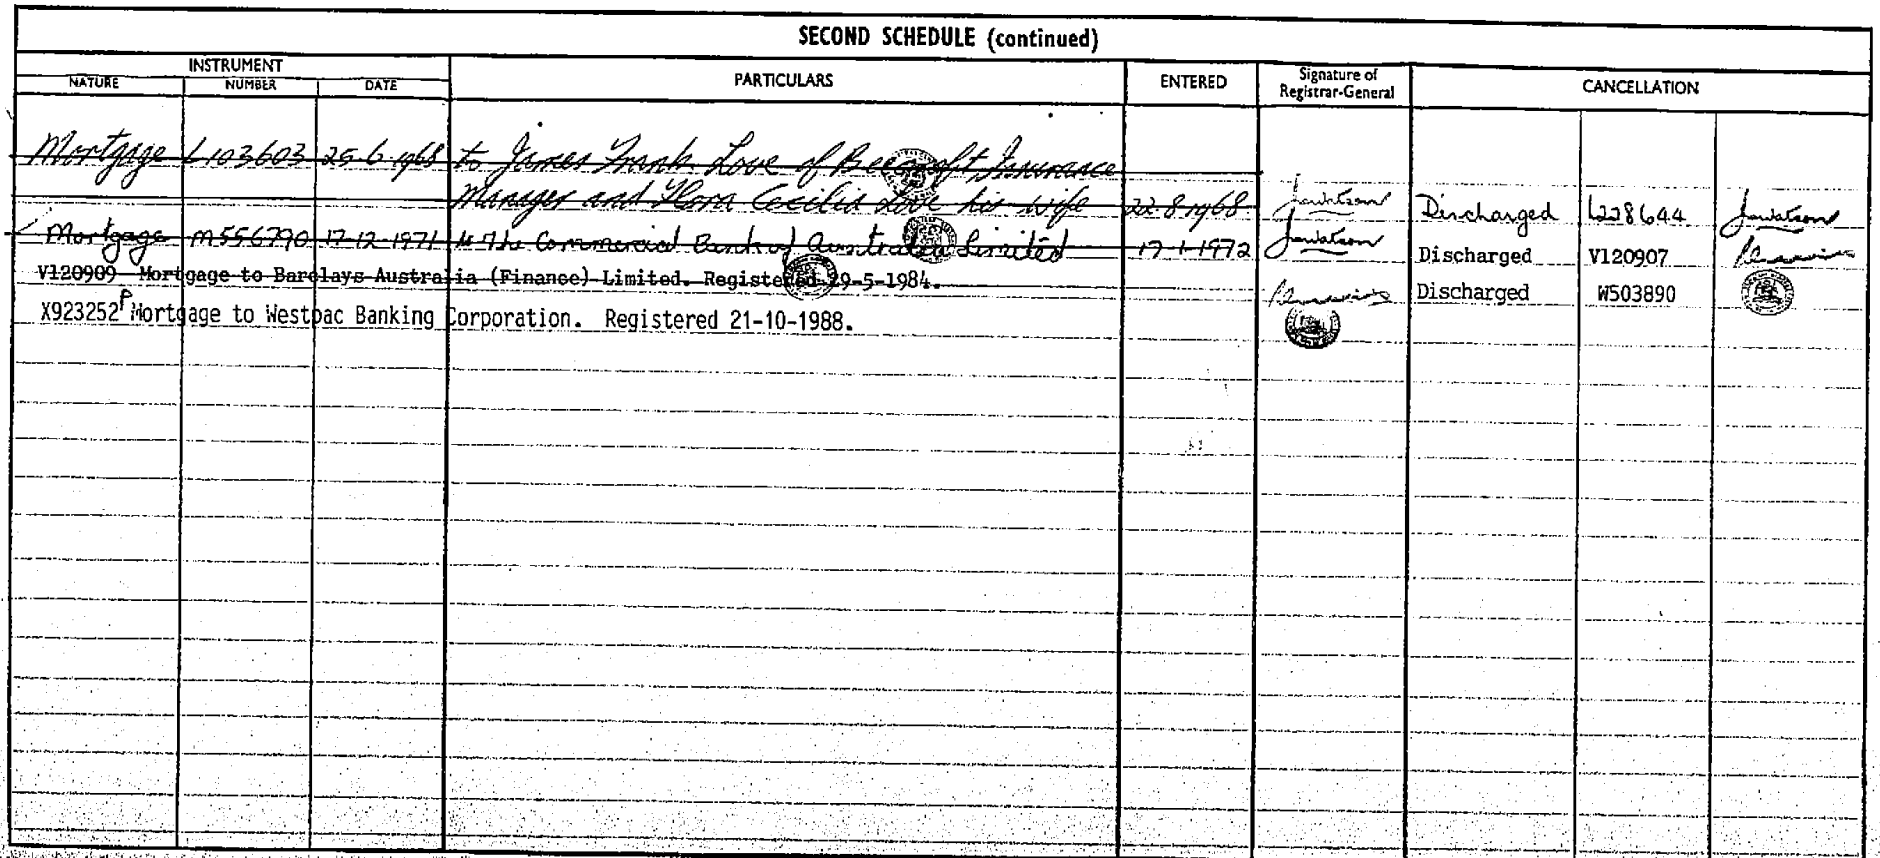 SECOND SCHEDULE (continued)
INSTRUMENT
NATURE NUMBER DATE PARTICULARS ENTERED Signature of Registrar-General CANCELLATION
Mortgage L103603 25-6-1968 to James Frank Love of Beecroft Insurance
Manager and Flora Cecilia Love his wife 22-8-1968 Discharged L228644
Mortgage M556790 17-12-1971 to The Commercial Bank of Australia Limited 17-1-1972 Discharged V120907
V120909 Mortgage to Barclays Australia (Finance) Limited. Registered 29-5-1984. Discharged W503890
X923252P Mortgage to Westpac Banking Corporation. Registered 21-10-1988.